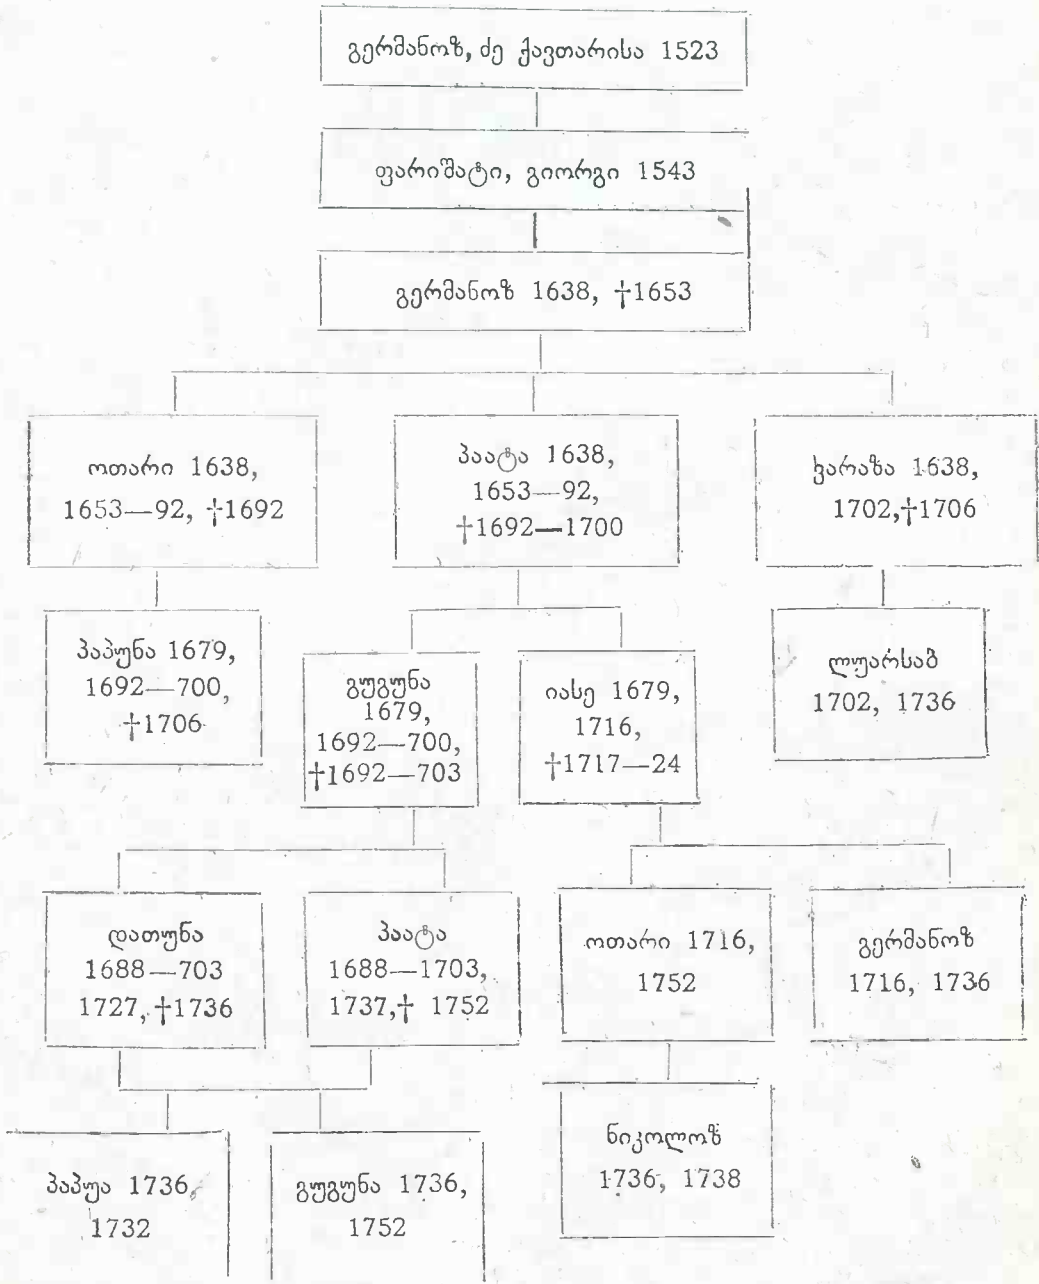 გერმანოზ, ძე ქავთარისა 1523
ფარიშატი, გიორგი 1543
გერმანოზ 1638, †1653
ოთარი 1638,
1653—92, †1692
პაატა 1638,
1653—92,
†1692—1700
ხარაზა 1638,
1702,†1706
პაპუნა 1679,
1692—700,
†1706
გუგუნა
1679,
1692—700,
†1692—703
იასე 1679,
1716,
†1717—24
ლუარსაბ
1702, 1736
დათუნა
1688—703
1727, †1736
პაატა
1688—1703,
1737,† 1752
ოთარი 1716,
1752
გერმანოზ
1716, 1736
პაპუა 1736,
1732
გუგუნა 1736,
1752
ნიკოლოზ
1736, 1738